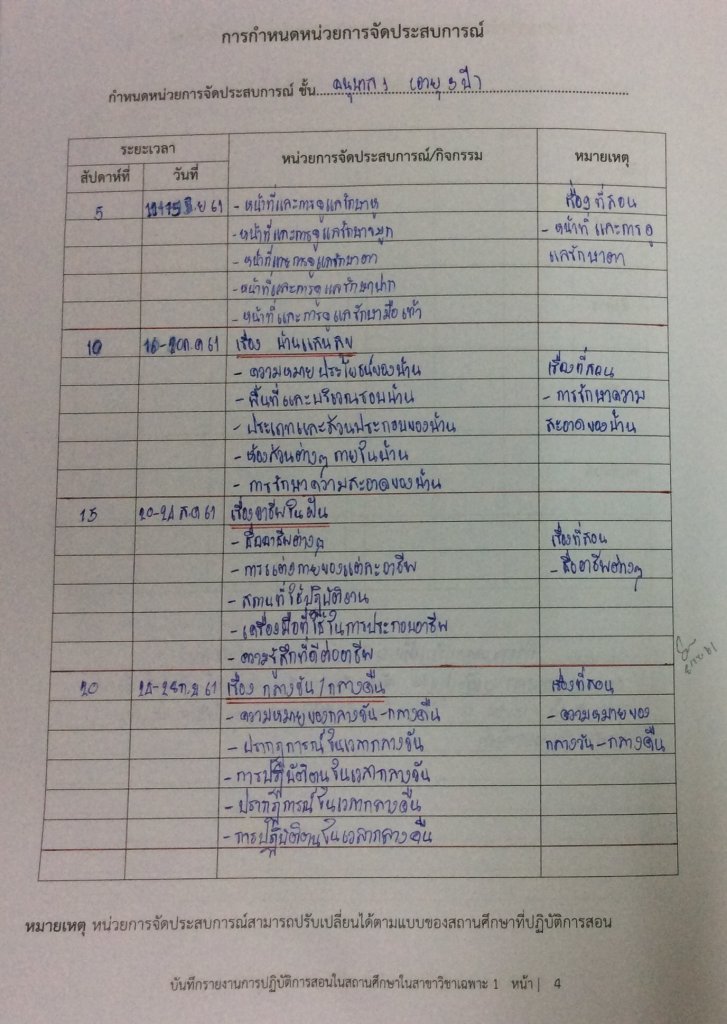 การกำหนดหน่วยการจัดประสบการณ์
กำหนดหน่วยการจัดประสบการณ์ ชั้น อนุบาล 1 (อายุ 3 ปี)
ระยะเวลา หน่วยการจัดประสบการณ์/กิจกรรม หมายเหตุ
สัปดาห์ที่ วันที่
5 ย 61 - หน้าที่และการดูแลรักษาหู เรื่องที่สอน
- หน้าที่และการดูแลรักษาจมูก - หน้าที่และการดู
- หน้าที่และการดูแลรักษาตา แลรักษาตา
- หน้าที่และการดูแลรักษาปาก
- หน้าที่และการดูแลรักษามือ เท้า
10 16-20ก.ค 61 เรื่อง บ้านแสนสุข
- ความหมาย ประโยชน์ของบ้าน เรื่องที่สอน
- พื้นที่และบริเวณรอบบ้าน - การรักษาความ
- ประเภทและส่วนประกอบของบ้าน สะอาดของบ้าน
- ห้องส่วนต่างๆ ภายในบ้าน
- การรักษาความสะอาดของบ้าน
15 20-24 ส.ค 61 เรื่องอาชีพในฝัน
- ชื่ออาชีพต่างๆ เรื่องที่สอน
- การแต่งกายของแต่ละอาชีพ - ชื่ออาชีพต่างๆ
- สถานที่ใช้ปฏิบัติงาน
- เครื่องมือที่ใช้ในการประกอบอาชีพ
- ความรู้สึกที่ดีต่ออาชีพ
20 24-28ก.ย 61 เรื่อง กลางวัน/กลางคืน เรื่องที่สอน
- ความหมายของกลางวัน-กลางคืน - ความหมายของ
- ปรากฏการณ์ในเวลากลางวัน กลางวัน-กลางคืน
- การปฏิบัติตนในเวลากลางวัน
- ปรากฏการณ์ในเวลากลางคืน
- การปฏิบัติตนในเวลากลางคืน
หมายเหตุ หน่วยการจัดประสบการณ์สามารถปรับเปลี่ยนได้ตามแบบของสถานศึกษาที่ปฏิบัติการสอน
บันทึกรายงานการปฏิบัติการสอนในสถานศึกษาในสาขาวิชาเฉพาะ 1 หน้า | 4